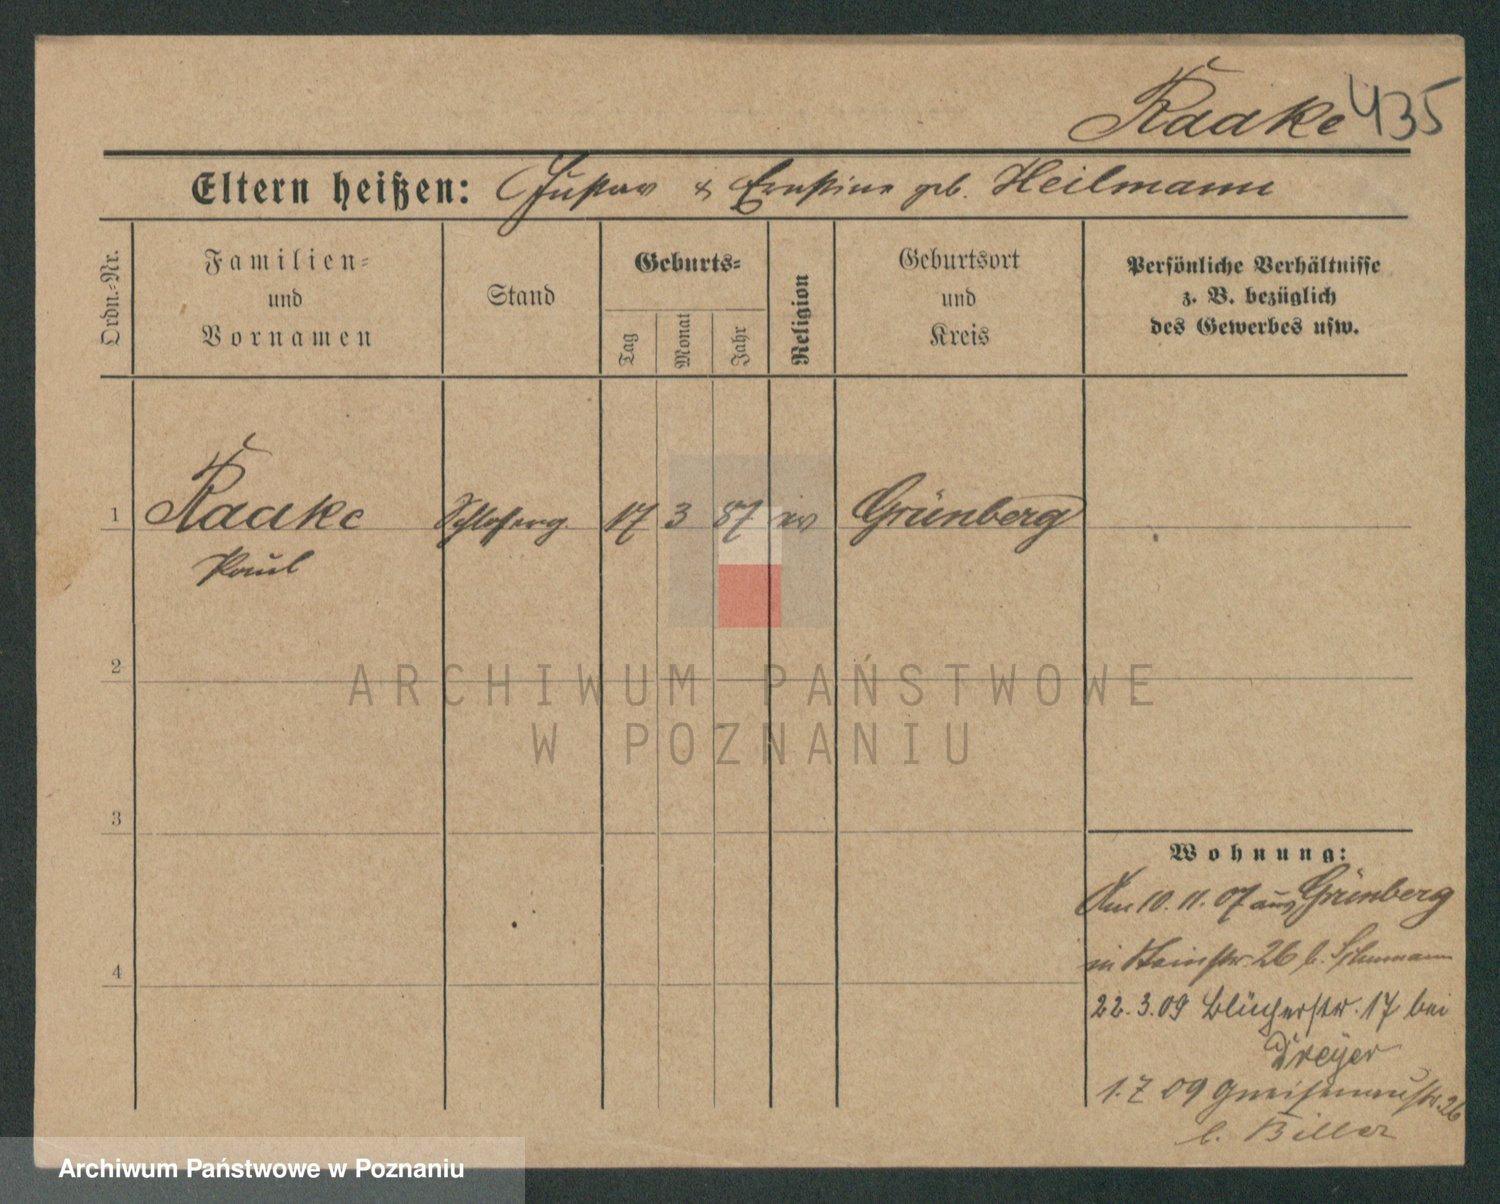 Raake 435
Eltern heißen: Gustav & Ernstine geb. Heilmann
Ordn.-Nr.
Familien-
und
Vornamen
Stand
Geburts-
Tag
Monat
Jahr
Religion
Geburtsort
und
Kreis
Persönliche Verhältnisse
z. B. bezüglich
des Gewerbes usw.
1 Raake 17 3 87 ev Grünberg
Paul
2
ARCHIWUM PAŃSTWOWE
W POZNANIU
3
Wohnung:
Am 10. 11. 07 aus Grünberg
in 26 b. Schumann
4
22. 3. 09 Blücherstr. 17 bei
Dreyer
1. 7 09 Gneisenaustr. 26
b. Biller
Archiwum Państwowe w Poznaniu